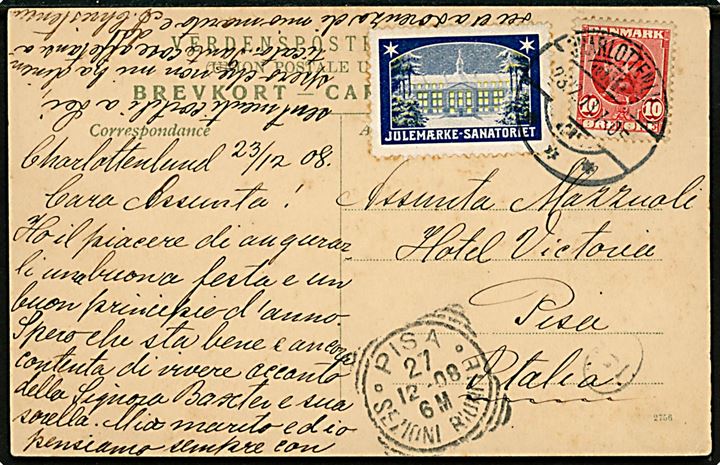 VERDENSPOSTF
(UNION POSTALE U
BREVKORT - CAR
Correspondance
JULEMÆRKE-SANATORIET
DANMARK
10 10
ØRE
CHARLOTTENLU
Charlottenlund 23/12 08.
Cara Assunta!
Ho il piacere di augurar-
li una buona festa e un
buon principio d'anno
Spero che sta bene e ancora
contenta di vivere accanto
della Signora Baxter e sua
sorella. Mio marito ed io
pensiamo sempre con
sentimenti cordiali a Lei
Assunta Mazzuoli
Hotel Victoria
Pisa
Italia
PISA
27
12-08
6M
SEZIONI RIUNITE
2756